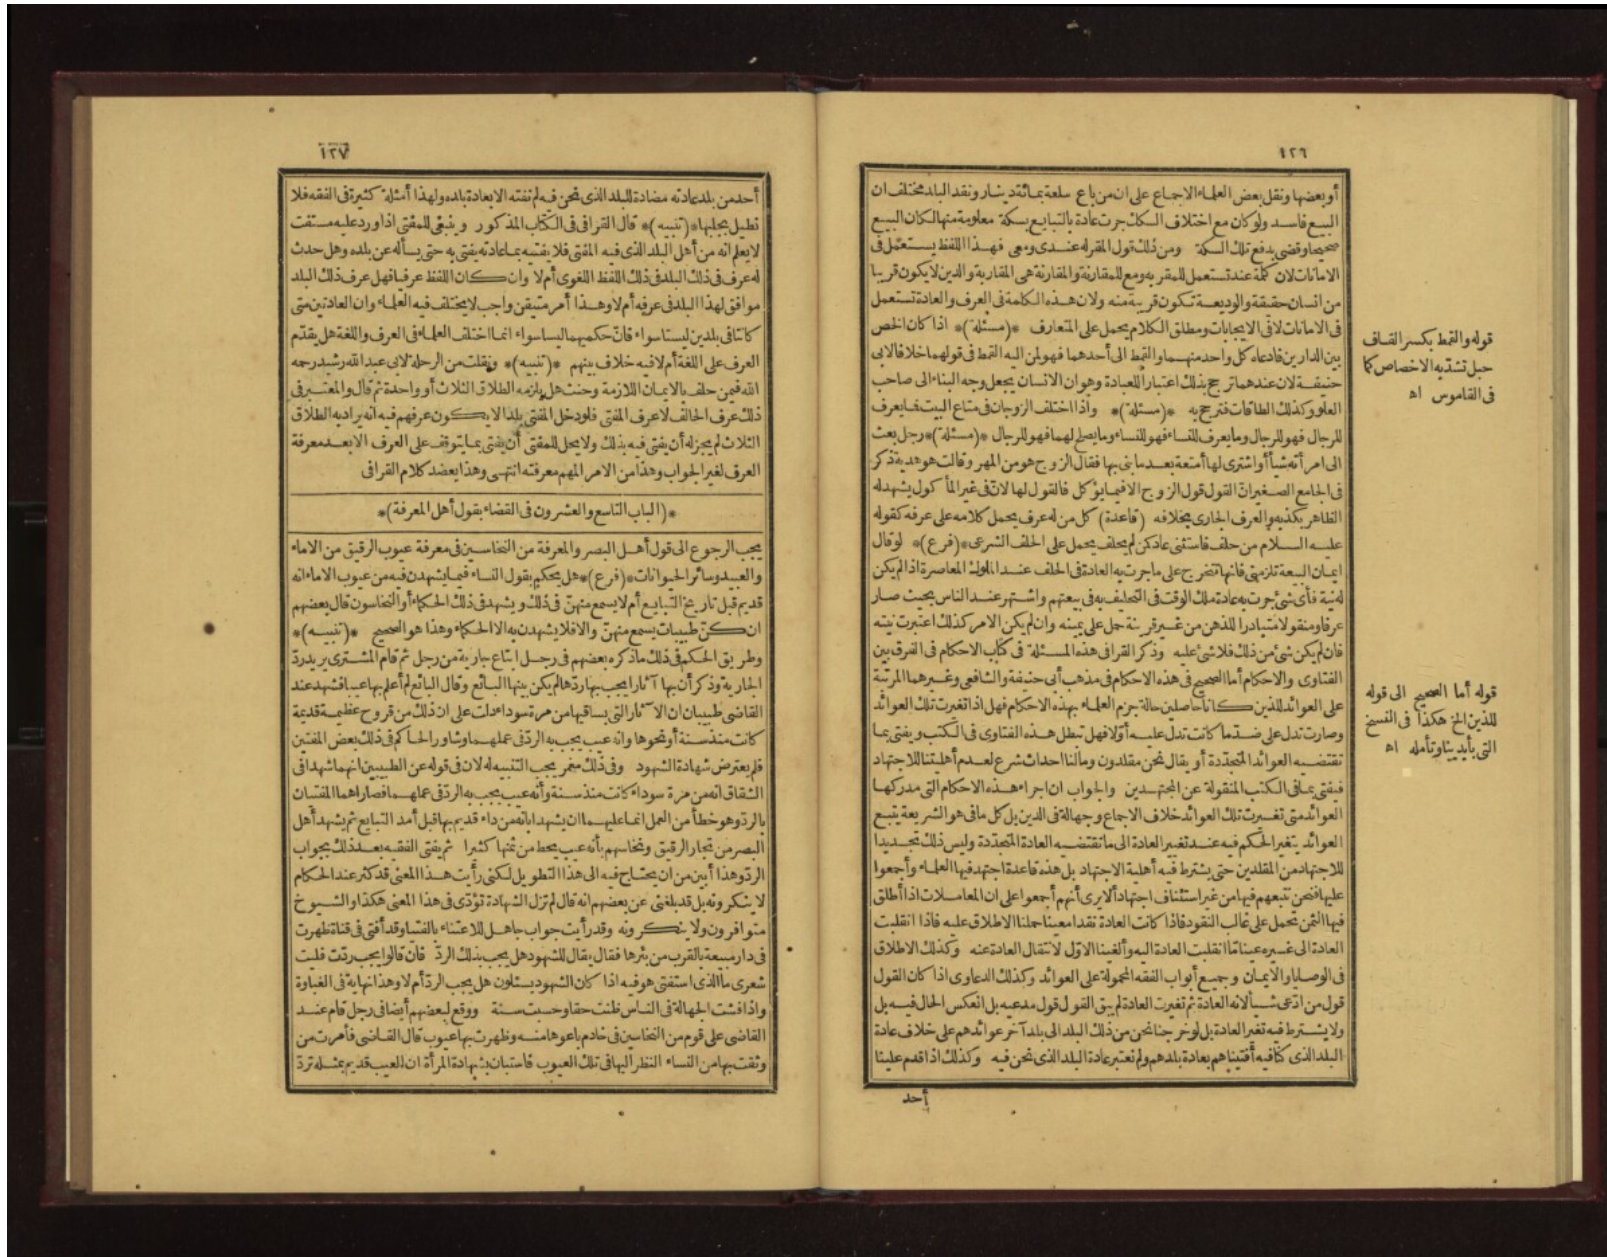 ١٢٦
أو بعضها ونقل بعض العلماء الاجماع على ان من باع سلعة بمائة دينار ونقد البلد مختلف ان
البيع فاسد ولو كان مع اختلاف السكك جرت عادة بالتبايع بسكة معلومة منها لكان البيع
صحيحا وقضى بدفع تلك السكة ومن ذلك قول المقر له عندى ومعى فهذا اللفظ يستعمل فى
الامانات لان كلمة عند تستعمل للمقر به ومع للمقارنة والمقارنة هى المقاربة والدين لا يكون قريبا
من انسان حقيقة والوديعة تكون قريبة منه ولان هذه الكلمة فى العرف والعادة تستعمل
فى الامانات لا فى الايجابات ومطلق الكلام يحمل على المتعارف *(مسئلة)* اذا كان الخص
بين الدارين فادعاه كل واحد منهما والقمط الى أحدهما فهو لمن اليه القمط فى قولهما خلافا لابى
حنيفة لان عندهما ترجح بذلك اعتبارا للعادة وهو ان الانسان يجعل وجه البناء الى صاحب
العلو وكذلك الطاقات فترجح به *(مسئلة)* واذا اختلف الزوجان فى متاع البيت فما يعرف
للرجال فهو للرجال وما يعرف للنساء فهو للنساء وما يصلح لهما فهو للرجال *(مسئلة)* رجل بعث
الى امرأته شيأ أو اشترى لها أمتعة بعد ما بنى بها فقال الزوج هو من المهر وقالت هو هدية ذكر
فى الجامع الصغير ان القول قول الزوج الا فيما يؤكل فالقول لها لان فى غير المأكول يشهد له
الظاهر يكذبه والعرف الجارى بخلافه (قاعدة) كل من له عرف يحمل كلامه على عرفه كقوله
عليه السلام من حلف فاستثنى عاد كن لم يحلف يحمل على الحلف الشرعى *(فرع)* لو قال
ايمان البيعة تلزمنى فانها تخرج على ما جرت به العادة فى الحلف عند الملوك المعاصرة اذا لم يكن
له نية فأى شئ جرت به عادة ملك الوقت فى التحليف به فى بيعتهم واشتهر عند الناس بحيث صار
عرفا ومنقولا متبادرا للذهن من غير قرينة حمل على يمينه وان لم يكن الامر كذلك اعتبرت نيته
فان لم يكن شئ من ذلك فلا شئ عليه وذكر القرافى هذه المسئلة فى كتاب الاحكام فى الفرق بين
الفتاوى والاحكام أما الصحيح فى هذه الاحكام فى مذهب أبى حنيفة والشافعى وغيرهما المرتبة
على العوائد للذين كانا حاصلين حالة جزم العلماء بهذه الاحكام فهل اذا تغيرت تلك العوائد
وصارت تدل على ضد ما كانت تدل عليه أولا فهل تبطل هذه الفتاوى فى الكتب ويفتى بما
تقتضيه العوائد المتجددة أو يقال نحن مقلدون وما لنا احداث شرع لعدم أهليتنا للاجتهاد
فنفتى بما فى الكتب المنقولة عن المجتهدين والجواب ان اجراء هذه الاحكام التى مدركها
العوائد متى تغيرت تلك العوائد خلاف الاجماع وجهالة فى الدين بل كل ما فى هو الشريعة يتبع
العوائد يتغير الحكم فيه عند تغيير العادة الى ما تقتضيه العادة المتجددة وليس ذلك تجديدا
للاجتهاد من المقلدين حتى يشترط فيه أهلية الاجتهاد بل هذه قاعدة اجتهد فيها العلماء وأجمعوا
عليها فنحن نتبعهم فيها من غير استئناف اجتهاد ألا يرى أنهم أجمعوا على ان المعاملات اذا أطلق
فيها الثمن تحمل على غالب النقود فاذا كانت العادة نقدا معينا حملنا الاطلاق عليه فاذا انقلبت
العادة الى غيره عينا ما انقلبت العادة اليه وألغينا الاول لانتقال العادة عنه وكذلك الاطلاق
فى الوصايا والايمان وجميع أبواب الفقه المحمولة على العوائد وكذلك الدعاوى اذا كان القول
قول من ادعى شيأ لانه العادة ثم تغيرت العادة لم يبق القول قول مدعيه بل انعكس الحال فيه بل
ولا يشترط فيه تغير العادة بل لو خرجنا نحن من ذلك البلد الى بلد آخر عوائدهم على خلاف عادة
البلد الذى كنا فيه أفتيناهم بعادة بلدهم ولم نعتبر عادة البلد الذى نحن فيه وكذلك اذا قدم علينا
أحد
قوله والقمط بكسر القاف
حبل تشد به الاخصاص كما
فى القاموس اه
قوله أما الصحيح الى قوله
للذين الخ هكذا فى النسخ
التى بأيدينا وتأمله اه
١٢٧
أحد من بلد عادته مضادة للبلد الذى نحن فيه لم نفته الا بعادة بلده ولهذا أمثلة كثيرة فى الفقه فلا
نطيل بجلبها *(تنبيه)* قال القرافى فى الكتاب المذكور وينبغى للمفتى اذا ورد عليه مستفت
لا يعلم انه من أهل البلد الذى فيه المفتى فلا يفتيه بما عادته يفتى به حتى يسأله عن بلده وهل حدث
له عرف فى ذلك البلد فى ذلك اللفظ اللغوى أم لا وان كان اللفظ عرفيا فهل عرف ذلك البلد
موافق لهذا البلد فى عرفه أم لا وهذا أمر متيقن واجب لا يختلف فيه العلماء وان العادتين متى
كانتا فى بلدين ليستا سواء فان حكميهما ليسا سواء انما اختلف العلماء فى العرف واللغة هل يقدم
العرف على اللغة أم لا فيه خلاف بينهم *(تنبيه)* ونقلت من الرحلة لابى عبد الله رشيد رحمه
الله فيمن حلف بالايمان اللازمة وحنث هل يلزمه الطلاق الثلاث أو واحدة ثم قال والمعتبر فى
ذلك عرف الحالف لا عرف المفتى فلو دخل المفتى بلدا لا يكون عرفهم فيه انه يراد به الطلاق
الثلاث لم يجز له أن يفتى فيه بذلك ولا يحل للمفتى أن يفتى بما يتوقف على العرف الا بعد معرفة
العرف لغير الجواب وهذا من الامر المهم معرفته انتهى وهذا يعضد كلام القرافى
*(الباب التاسع والعشرون فى القضاء بقول أهل المعرفة)*
يجب الرجوع الى قول أهل البصر والمعرفة من النخاسين فى معرفة عيوب الرقيق من الاماء
والعبيد وسائر الحيوانات *(فرع)* هل يحكم بقول النساء فيما يشهدن فيه من عيوب الاماء انه
قديم قبل تاريخ التبايع أم لا يسمع منهن فى ذلك ويشهد فى ذلك الحكماء أو النخاسون قال بعضهم
ان كن طبيبات يسمع منهن والا فلا يشهد به الا الحكماء وهذا هو الصحيح *(تنبيه)*
وطريق الحكم فى ذلك ما ذكره بعضهم فى رجل ابتاع جارية من رجل ثم قام المشترى يريد رد
الجارية وذكر أن بها آثارا يجب بها ردها لم يكن بينها البائع وقال البائع لم أعلم بها عيبا فشهد عند
القاضى طبيبان ان الآثار التى بساقيها من مرة سوداء دلت على ان ذلك من قروح عظيمة قديمة
كانت منذ سنة أو نحوها وانه عيب يجب به الرد فى عملهما وشاور الحاكم فى ذلك بعض المفتين
فلم يعترض شهادة الشهود وفى ذلك مغمز يجب التنبيه له لان فى قوله عن الطبيبين انهما شهدا فى
الشقاق انه من مرة سوداء كانت منذ سنة وأنه عيب يجب به الرد فى عملهما فصارا هما المفتيان
بالرد وهو خطأ من العمل انما عليهما ان يشهدا بانه من داء قديم بها قبل أمد التبايع ثم يشهد أهل
البصر من تجار الرقيق ونخاسهم بأنه عيب يحط من ثمنها كثيرا ثم يفتى الفقيه بعد ذلك بجواب
الرد وهذا أبين من ان يحتاج فيه الى هذا التطويل لكنى رأيت هذا المعنى قد كثر عند الحكام
لا ينكرونه بل قد بلغنى عن بعضهم انه قال لم تزل الشهادة تؤدى فى هذا المعنى هكذا والشيوخ
متوافرون ولا ينكرونه وقد رأيت جواب جاهل للاعتناء بالفتيا وقد أفتى فى قناة ظهرت
فى دار مبيعة بالقرب من بئرها فقال يقال للشهود هل يجب بذلك الرد فان قالوا يجب ردت فليت
شعرى ما الذى استفتى هو فيه اذا كان الشهود يسئلون هل يجب الرد أم لا وهذا نهاية فى الغباوة
واذا فشت الجهالة فى الناس ظنت حقا وحسبت سنة ووقع لبعضهم أيضا فى رجل قام عند
القاضى على قوم من النخاسين فى خادم باعوها منه وظهرت بها عيوب قال القاضى فأمرت من
وثقت بها من النساء النظر اليها فى تلك العيوب فاستبان بشهادة المرأة ان العيب قديم بمثله ترد